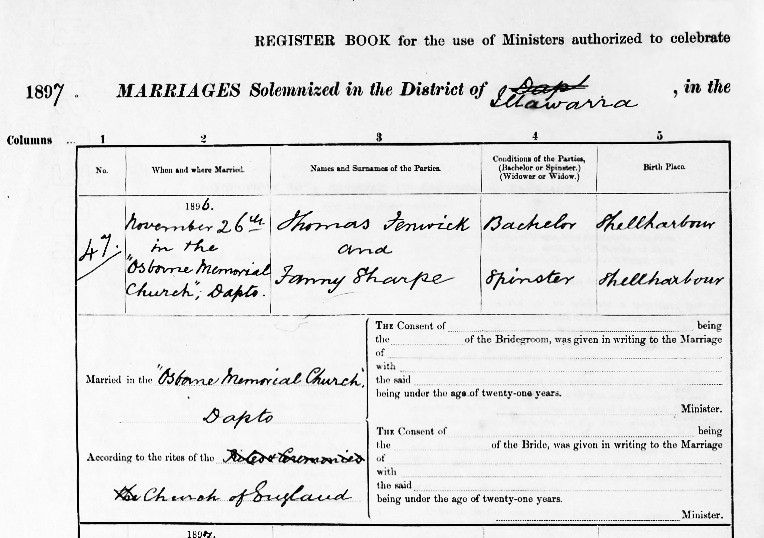 REGISTER BOOK for the use of Ministers authorized to celebrate
1897. MARRIAGES Solemnized in the District of Dapt Illawarra, in the
Columns ... 1 2 3 4 5
No. When and where Married. Names and Surnames of the Parties. Conditions of the Parties, (Bachelor or Spinster.) (Widower or Widow.) Birth Place.
1896.
47. November 26th Thomas Fenwick Bachelor Shellharbour
in the and
"Osborne Memorial Fanny Sharpe Spinster Shellharbour
Church", Dapto.
Married in the "Osborne Memorial Church",
Dapto
According to the rites of the Rites & Ceremonies
the Church of England
THE Consent of being
the of the Bridegroom, was given in writing to the Marriage
of
with
the said
being under the age of twenty-one years.
Minister.
THE Consent of being
the of the Bride, was given in writing to the Marriage
of
with
the said
being under the age of twenty-one years.
Minister.
1897.